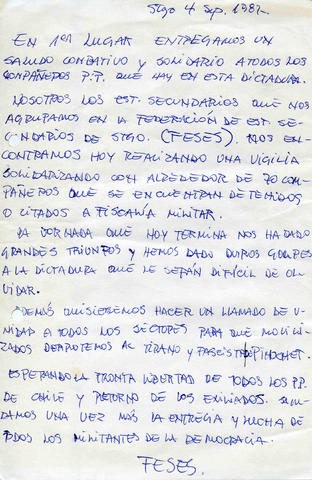 Stgo 4 Sep. 1987.
EN 1er LUGAR ENTREGAMOS UN
SALUDO COMBATIVO Y SOLIDARIO A TODOS LOS
COMPAÑEROS P.P. QUE HAY EN ESTA DICTADURA.
NOSOTROS LOS EST. SECUNDARIOS QUE NOS
AGRUPAMOS EN LA FEDERACIÓN DE EST. SE-
CUNDARIOS DE STGO. (FESES). NOS EN-
CONTRAMOS HOY REALIZANDO UNA VIGILIA
SOLIDARIZANDO CON ALREDEDOR DE 70 COM-
PAÑEROS QUE SE ENCUENTRAN DETENIDOS
O CITADOS A FISCALÍA MILITAR.
LA JORNADA QUE HOY TERMINA NOS HA DADO
GRANDES TRIUNFOS Y HEMOS DADO DUROS GOLPES
A LA DICTADURA QUE LE SERÁN DIFÍCIL DE OL-
VIDAR.
ADEMÁS QUISIEREMOS HACER UN LLAMADO DE U-
NIDAD A TODOS LOS SECTORES PARA QUE MOVILI-
ZADOS DERROTEMOS AL TIRANO Y FASCISTA PINOCHET.
ESPERANDO LA PRONTA LIBERTAD DE TODOS LOS P.P.
DE CHILE Y RETORNO DE LOS EXILIADOS. SALU-
DAMOS UNA VEZ MÁS LA ENTREGA Y LUCHA DE
TODOS LOS MILITANTES DE LA DEMOCRACIA.
FESES.